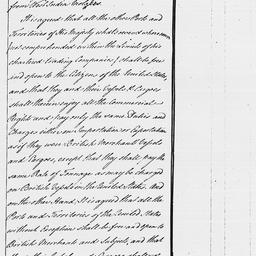 from West India Molasses.
It is agreed that all the other Ports and
Territories of His Majesty whatsoever wheresoever
(not comprehended within the Limits of his
chartered trading Companies) shall be free
and open to the Citizens of the United States,
and that they and their Vessels & Cargoes
shall therein enjoy all the Commercial
Rights and pay only the same Duties and
Charges either on Importation or Exportation
as if they were British Merchants Vessels
and Cargoes, except that they shall pay the
same Rate of Tonnage as may be charged
on British Vessels in the United States. And
on the other Hand, It is agreed that all the
Ports and Territories of the United States
without Exception shall be free and open to
British Merchants and Subjects, and that